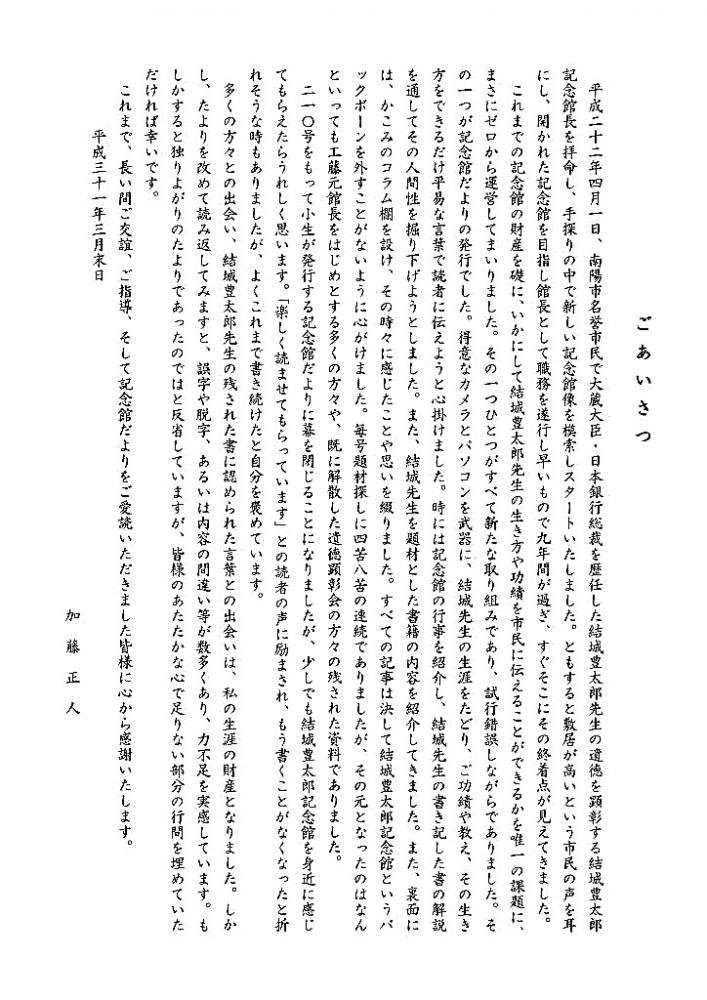 ごあいさつ
平成二十二年四月一日、南陽市名誉市民で大蔵大臣・日本銀行総裁を歴任した結城豊太郎先生の遺徳を顕彰する結城豊太郎
記念館長を拝命し、手探りの中で新しい記念館像を模索しスタートいたしました。ともすると敷居が高いという市民の声を耳
にし、開かれた記念館を目指し館長として職務を遂行し早いもので九年間が過ぎ、すぐそこにその終着点が見えてきました。
これまでの記念館の財産を礎に、いかにして結城豊太郎先生の生き方や功績を市民に伝えることができるかを唯一の課題に、
まさにゼロから運営してまいりました。その一つひとつがすべて新たな取り組みであり、試行錯誤しながらでありました。そ
の一つが記念館だよりの発行でした。得意なカメラとパソコンを武器に、結城先生の生涯をたどり、ご功績や教え、その生き
方をできるだけ平易な言葉で読者に伝えようと心掛けました。時には記念館の行事を紹介し、結城先生の書き記した書の解説
を通してその人間性を掘り下げようとしました。また、結城先生を題材とした書籍の内容を紹介してきました。また、裏面に
は、かこみのコラム欄を設け、その時々に感じたことや思いを綴りました。すべての記事は決して結城豊太郎記念館というバ
ックボーンを外すことがないように心がけました。毎号題材探しに四苦八苦の連続でありましたが、その元となったのはなん
といっても工藤元館長をはじめとする多くの方々や、既に解散した遺徳顕彰会の方々の残された資料でありました。
二一〇号をもって小生が発行する記念館だよりに幕を閉じることになりましたが、少しでも結城豊太郎記念館を身近に感じ
てもらえたらうれしく思います。「楽しく読ませてもらっています」との読者の声に励まされ、もう書くことがなくなったと折
れそうな時もありましたが、よくこれまで書き続けたと自分を褒めています。
多くの方々との出会い、結城豊太郎先生の残された書に認められた言葉との出会いは、私の生涯の財産となりました。しか
し、たよりを改めて読み返してみますと、誤字や脱字、あるいは内容の間違い等が数多くあり、力不足を実感しています。も
しかすると独りよがりのたよりであったのではと反省していますが、皆様のあたたかな心で足りない部分の行間を埋めていた
だければ幸いです。
これまで、長い間ご交誼、ご指導、そして記念館だよりをご愛読いただきました皆様に心から感謝いたします。
平成三十一年三月末日
加藤正人